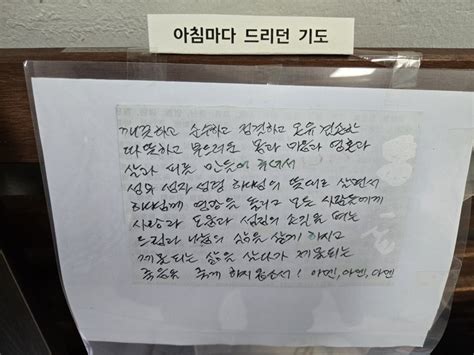 아침마다 드리던 기도
깨끗하고 순수하고 정결하고 온유 겸손한
따뜻하고 부드러운 몸과 마음과 영혼과
만들어 주셔서
하나님의 뜻대로 살면서
하나님께 영광을 돌리고 모든 사람들에게
사랑과 도움과 섬김의 손길을 펴는
드림과 나눔의 삶을 살게 하시고
삶을 살다가
죽음을 죽게 하시옵소서! 아멘, 아멘, 아멘